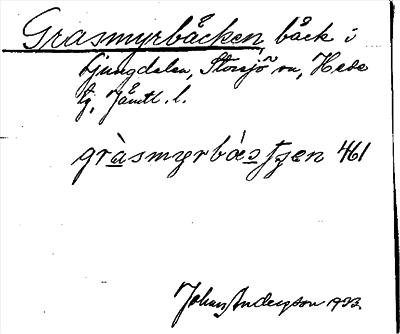 Gråsmyrbäcken, bäck i
Ljungdalen, Storsjö sn, Hede
tg, Jämtl. l.
461
Johan Anderson 1933.